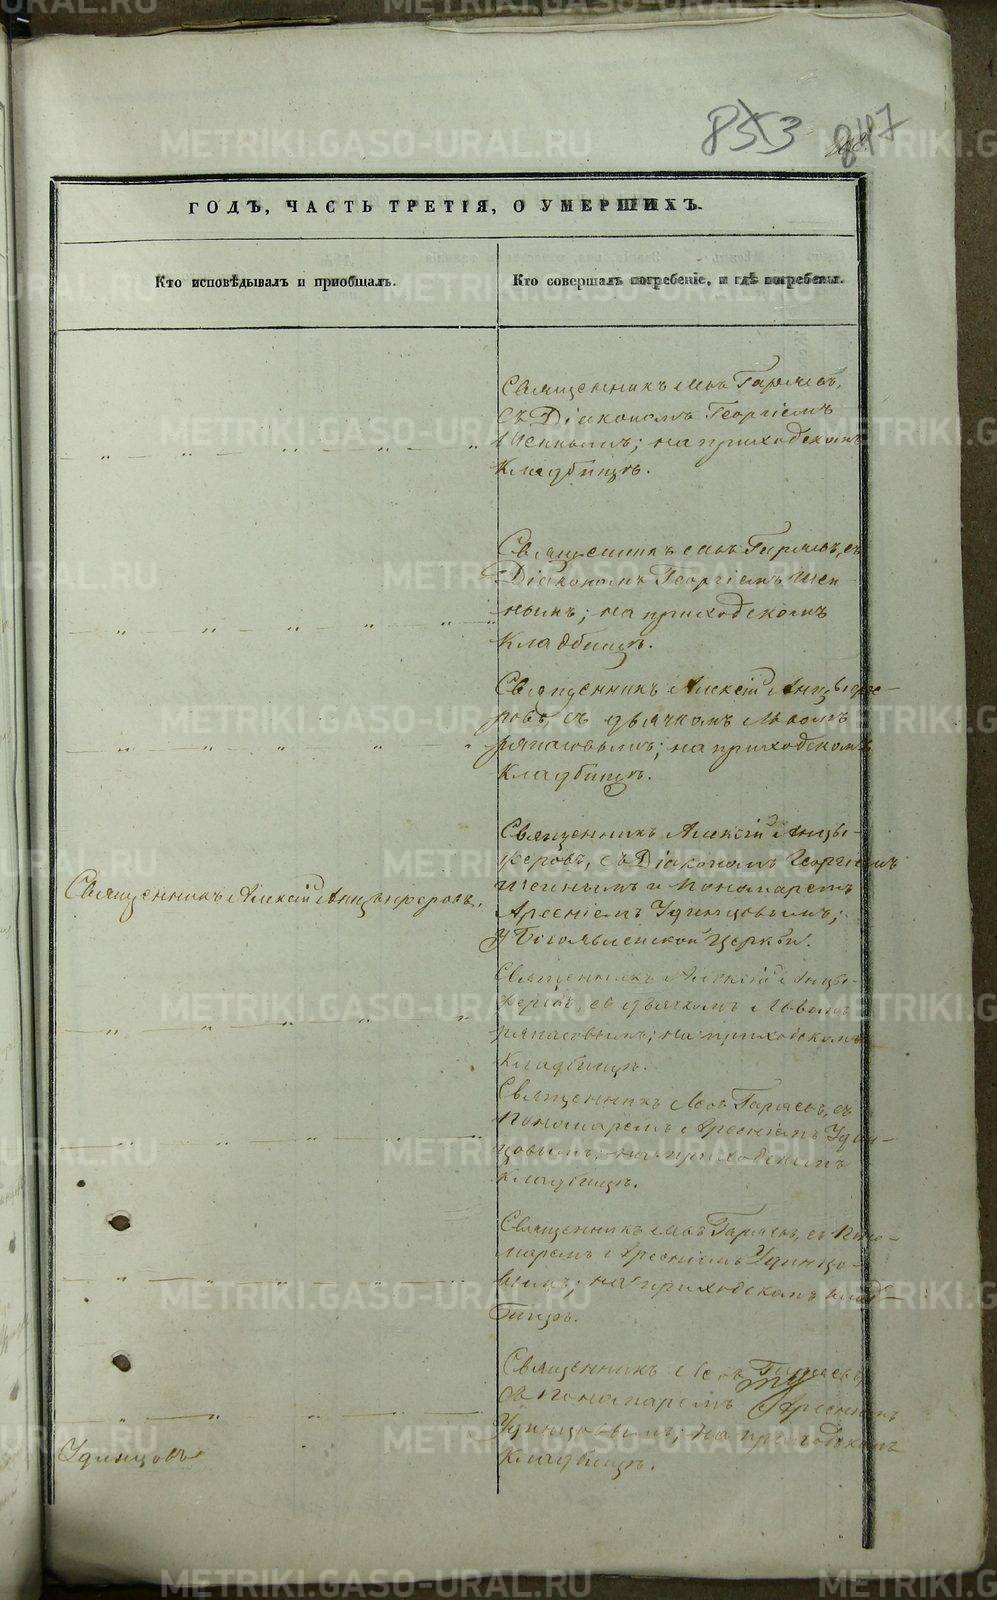 853 847
ГОДЪ, ЧАСТЬ ТРЕТІЯ, О УМЕРШИХЪ.
Кто исповѣдывалъ и приобщалъ.
Кто совершалъ погребеніе, и гдѣ погребены.
Священникъ Іовъ Гаряевъ,
съ Діакономъ Георгіемъ
Шеинымъ; на приходскомъ
кладбищѣ.
Священникъ Іовъ Гаряевъ, съ
Діакономъ Георгіемъ Шеи-
нымъ; на приходскомъ
кладбищѣ.
Священникъ Алексій Анцыфе-
ровъ, съ дьячкомъ
на приходскомъ
кладбищѣ.
Священникъ Алексій Анцыферовъ.
Священникъ Алексій Анцы-
феровъ, съ Діакономъ Георгіемъ
Шеинымъ и Пономаремъ
Арсеніемъ Удинцовымъ;
у Богоявленской церкви.
Священникъ Алексій Анцы-
феровъ, съ дьячкомъ
на приходскомъ
кладбищѣ.
Священникъ Іовъ Гаряевъ, съ
Пономаремъ Арсеніемъ Удин-
цовымъ; на приходскомъ
кладбищѣ.
Священникъ Іовъ Гаряевъ, съ Поно-
маремъ Арсеніемъ Удинцо-
вымъ; на приходскомъ клад-
бищѣ.
Священникъ Іовъ Гаряевъ
съ Пономаремъ Арсеніемъ
Удинцовымъ; на приходскомъ
кладбищѣ.
Удинцовъ
METRIKI.GASO-URAL.RU